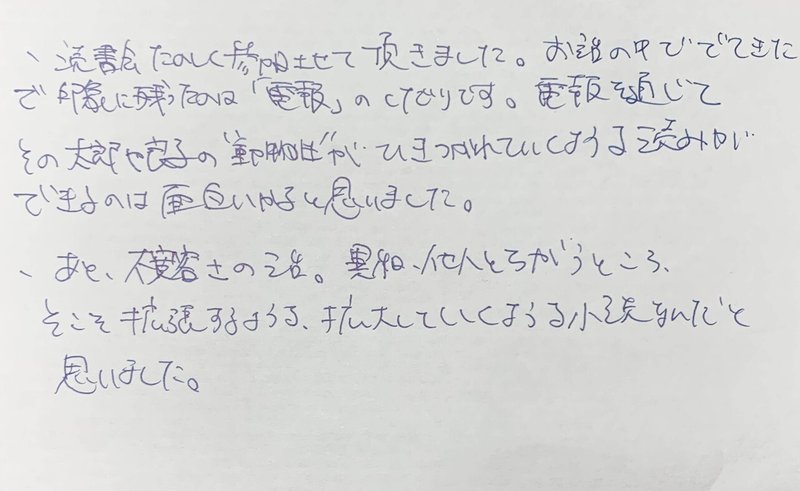 、読書会たのしく参加させて頂きました。お話の中ででてきた
で印象に残ったのは「電報」のくだりです。電報を通じて
その太郎や良子の"動物性"がひきつがれていくような読みが
できるのは面白いかなと思いました。
、あと、不寛容さの話。異和、他人とちがうところ、
そこそ拡張するような、拡大していくような小説なんだと
思いました。